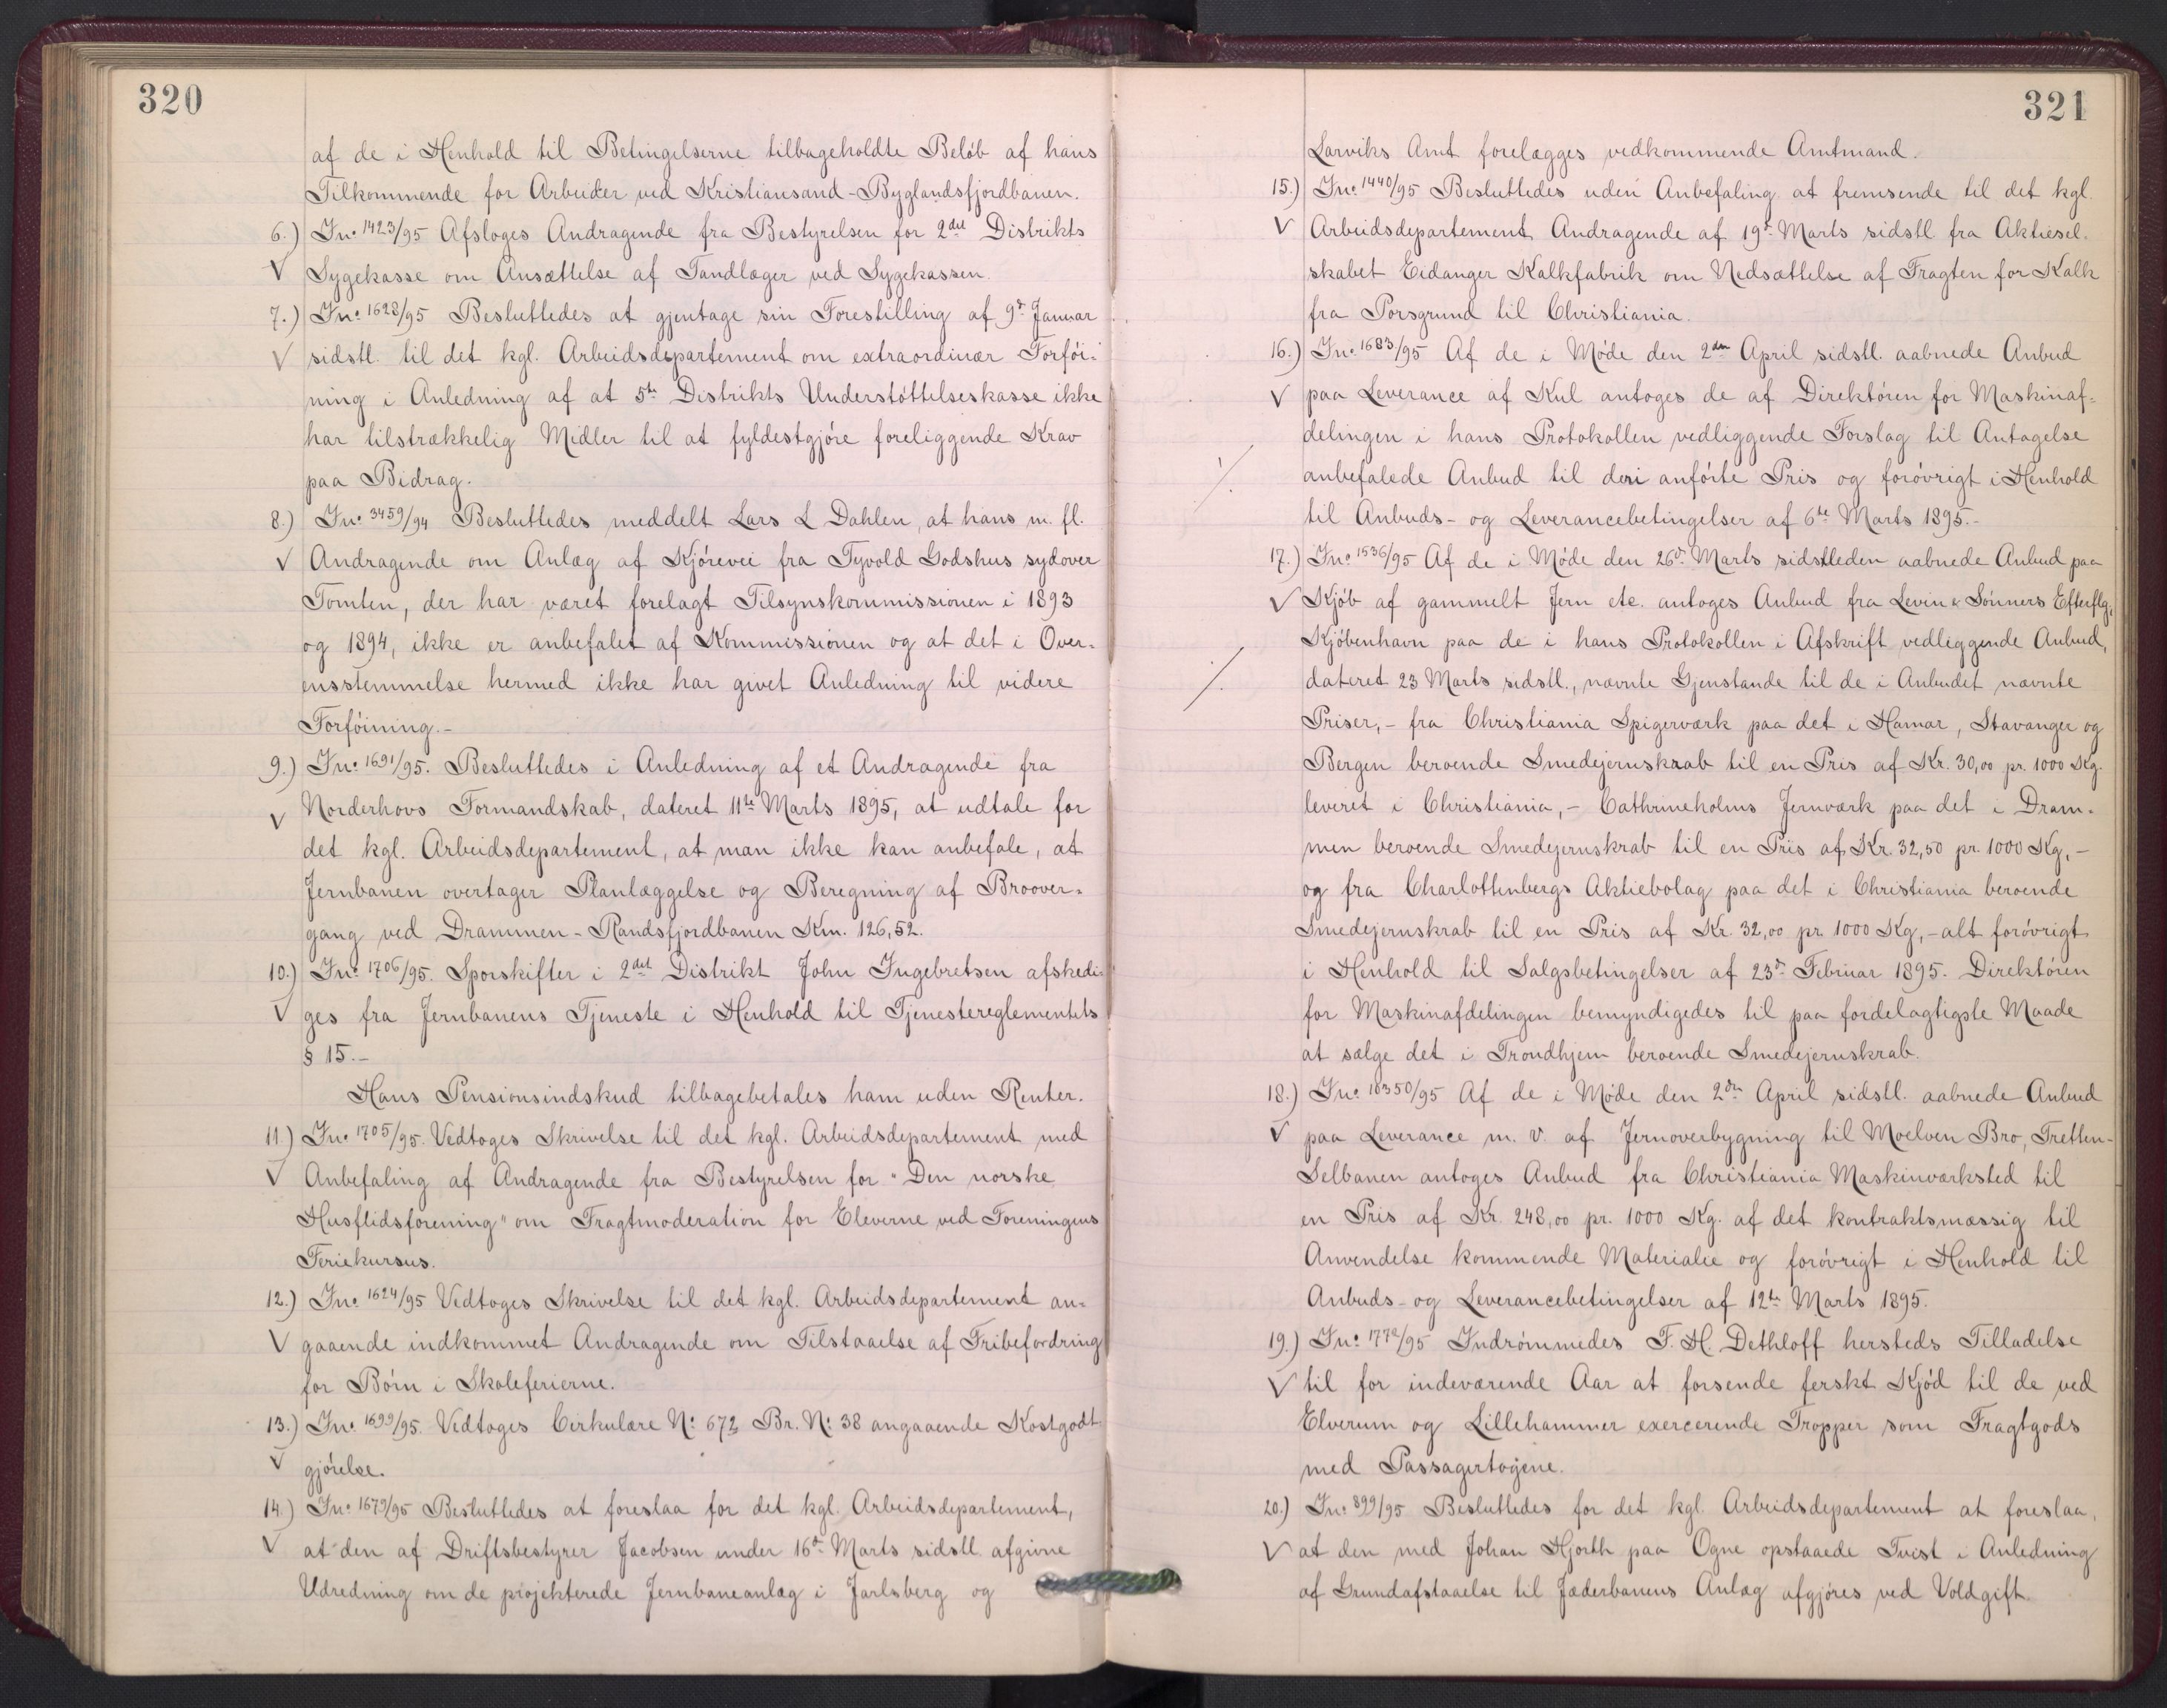 320
af de i Henhold til Betingelserne tilbageholdte Beløb af hans
Tilkommende for Arbeider ved Kristiansand-Byglandsfjordbanen.
6.) Jnº 1423/95 Afsloges Andragende fra Bestyrelsen for 2det Distrikts
V Sygekasse om Ansættelse af Tandlæger ved Sygekassen.
7.) Jnº 1628/95 Besluttedes at gjentage sin Forestilling af 9d Januar
V sidstl. til det kgl. Arbeidsdepartement om extraordinær Forføi-
ning i Anledning af at 5te Distrikts Understøttelseskasse ikke
har tilstrækkelig Midler til at fyldestgjøre foreliggende Krav
paa Bidrag.
8.) Jnº 3459/94 Besluttedes meddelt Lars L Dahlen, at hans m. fl.
V Andragende om Anlæg af Kjørevei fra Tyvold Godshus sydover
Tomten, der har været forelagt Tilsynskommissionen i 1893
og 1894, ikke er anbefalet af Kommissionen og at det i Over-
ensstemmelse hermed ikke har givet Anledning til videre
Forføining.-
9.) Jnº 1691/95. Besluttedes i Anledning af et Andragende fra
V Norderhovs Formandskab, dateret 11te Marts 1895, at udtale for
det kgl. Arbeidsdepartement, at man ikke kan anbefale, at
Jernbanen overtager Planlæggelse og Beregning af Broover-
gang ved Drammen-Randsfjordbanen Km. 126,52.
10.) Jnº 1706/95. Sporskifter i 2det Distrikt John Ingebretsen afskedi-
V ges fra Jernbanens Tjeneste i Henhold til Tjenestereglementets
§ 15.-
Hans Pensionsindskud tilbagebetales ham uden Renter.
11.) Jnº 1705/95. Vedtoges Skrivelse til det kgl. Arbeidsdepartement med
V Anbefaling af Andragende fra Bestyrelsen for "Den norske
Husflidsforening" om Fragtmoderation for Eleverne ved Foreningens
Feriekursus.
12.) Jnº 1624/95 Vedtoges Skrivelse til det kgl. Arbeidsdepartement an-
V gaaende indkommet Andragende om Tilstaaelse af Fribefordring
for Børn i Skoleferierne.
13.) Jnº 1699/95. Vedtoges Cirkulære Nº 672 Br. Nº 38 angaaende Kostgodt
V gjørelse.
14.) Jnº 1679/95 Besluttedes at foreslaa for det kgl. Arbeidsdepartement,
V at den af Driftsbestyrer Jacobsen under 16d Marts sidstl. afgivne
Udredning om de projekterede Jernbaneanlæg i Jarlsberg og
321
Larviks Amt forelægges vedkommende Amtmand.
15.) Jnº 1440/95 Besluttedes uden Anbefaling at fremsende til det kgl.
V Arbeidsdepartement Andragende af 19d Marts sidstl. fra Aktiesel-
skabet Eidanger Kalkfabrik om Nedsættelse af Fragten for Kalk
fra Porsgrund til Christiania.
16.) Jnº 1683/95 Af de i Møde den 2den April sidstl. aabnede Anbud
V paa Leverance af Kul antoges de af Direktøren for Maskinaf-
delingen i hans Protokollen vedliggende Forslag til Antagelse
anbefalede Anbud til deri anførte Pris og forøvrigt i Henhold
til Anbuds- og Leverancebetingelser af 6te Marts 1895.-
17.) Jnº 1536/95 Af de i Møde den 26d Marts sidstleden aabnede Anbud paa
V Kjøb af gammelt Jern etc. antoges Anbud fra Levin & Sønners Efterflg,
Kjøbenhavn paa de i hans Protokollen i Afskrift vedliggende Anbud,
dateret 23 Marts sidstl., nævnte Gjenstande til de i Anbudet nævnte
Priser,- fra Christiania Spigerværk paa det i Hamar, Stavanger og
Bergen beroende Smedejernskrab til en Pris af Kr. 30,00 pr. 1000 Kg.
leveret i Christiania,- Cathrineholms Jernværk paa det i Dram-
men beroende Smedejernskrab til en Pris af Kr. 32,50 pr. 1000 Kg,-
og fra Charlottenbergs Aktiebolag paa det i Christiania beroende
Smedejernskrab til en Pris af Kr. 32,00 pr. 1000 Kg,- alt forøvrigt
i Henhold til Salgsbetingelser af 23d Februar 1895. Direktøren
for Maskinafdelingen bemyndigedes til paa fordelagtigste Maade
at sælge det i Trondhjem beroende Smedejernskrab.
18.) Jnº 10350/95 Af de i Møde den 2den April sidstl. aabnede Anbud
V paa Leverance m. v. af Jernoverbygning til Moelven Bro, Tretten-
Selbanen antoges Anbud fra Christiania Maskinværksted til
en Pris af Kr. 248,00 pr. 1000 Kg. af det kontraktsmæssig til
Anvendelse kommende Materiale og forøvrigt i Henhold til
Anbuds- og Leverancebetingelser af 12te Marts 1895.
19.) Jnº 1772/95 Indrømmedes F. H. Dethloff hersteds Tilladelse
V til for indeværende Aar at forsende ferskt Kjød til de ved
Elverum og Lillehammer exercerende Tropper som Fragtgods
med Passagertogene.
20.) Jnº 899/95 Besluttedes for det kgl. Arbeidsdepartement at foreslaa,
V at den med Johan Hjorth paa Ogne opstaaede Tvist i Anledning
af Grundafstaaelse til Jæderbanens Anlæg afgjøres ved Voldgift.